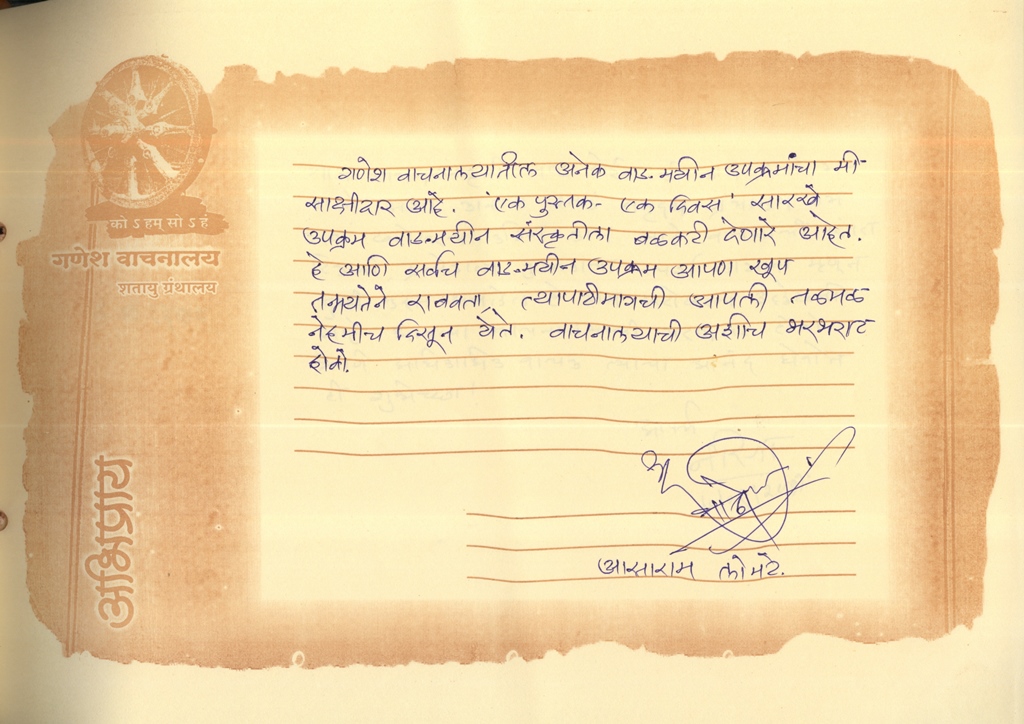 को ऽ हम् सो ऽ हं
गणेश वाचनालय
शतायु ग्रंथालय
अभिप्राय
गणेश वाचनालयातील अनेक वाङ्मयीन उपक्रमांचा मी
साक्षीदार आहे. 'एक पुस्तक- एक दिवस' सारखे
उपक्रम वाङ्मयीन संस्कृतीला बळकटी देणारे आहेत.
हे आणि सर्वच वाङ्मयीन उपक्रम आपण खूप
तन्मयतेने राबवता, त्यापाठीमागची आपली तळमळ
नेहमीच दिसून येते. वाचनालयाची अशीच भरभराट
होवो.
आसाराम लोमटे.